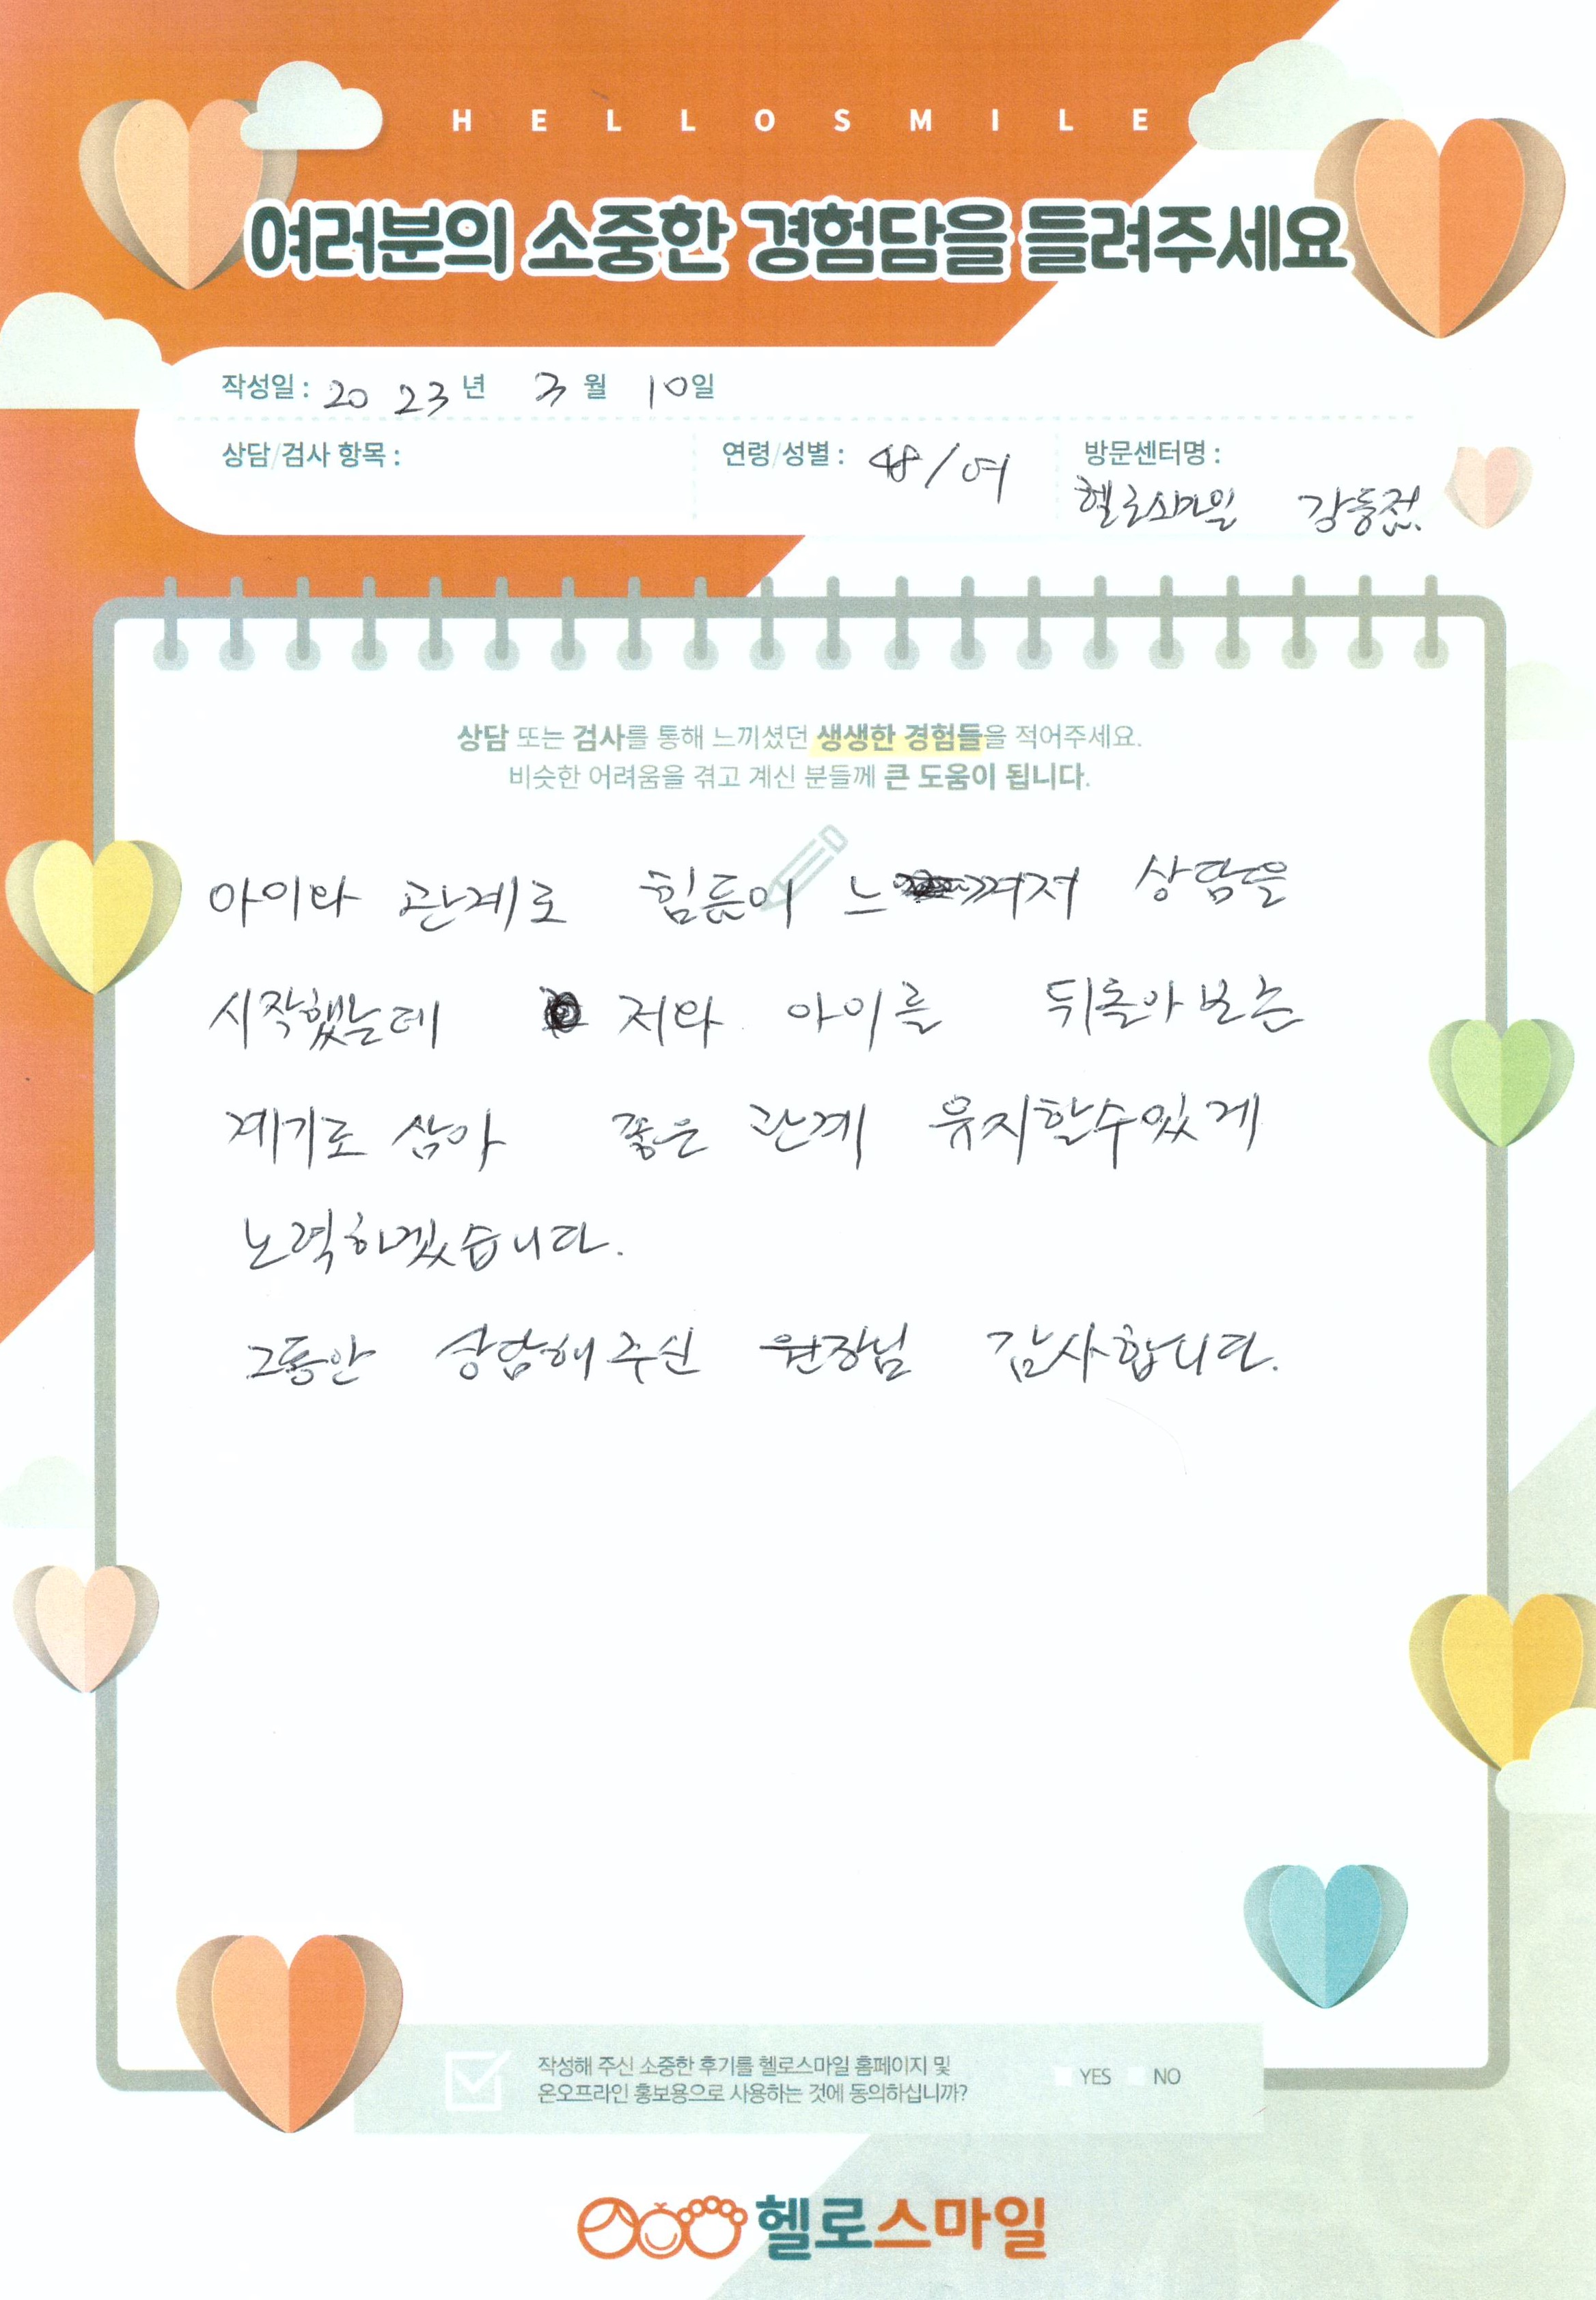 HELLOSMILE
여러분의 소중한 경험담을 들려주세요
작성일 : 2023년 3월 10일
상담/검사 항목 :
연령/성별 : 48/여
방문센터명 :
헬로스마일 강동점.
상담 또는 검사를 통해 느끼셨던 생생한 경험들을 적어주세요.
비슷한 어려움을 겪고 계신 분들께 큰 도움이 됩니다.
아이와 관계로 힘듬이 느껴저 상담을
시작했는데 저와 아이를 뒤돌아보는
계기로 삼아 좋은 관계 유지할수있게
노력하겠습니다.
그동안 상담해주신 원장님 감사합니다.
작성해 주신 소중한 후기를 헬로스마일 홈페이지 및
온오프라인 홍보용으로 사용하는 것에 동의하십니까?
YES NO
헬로스마일